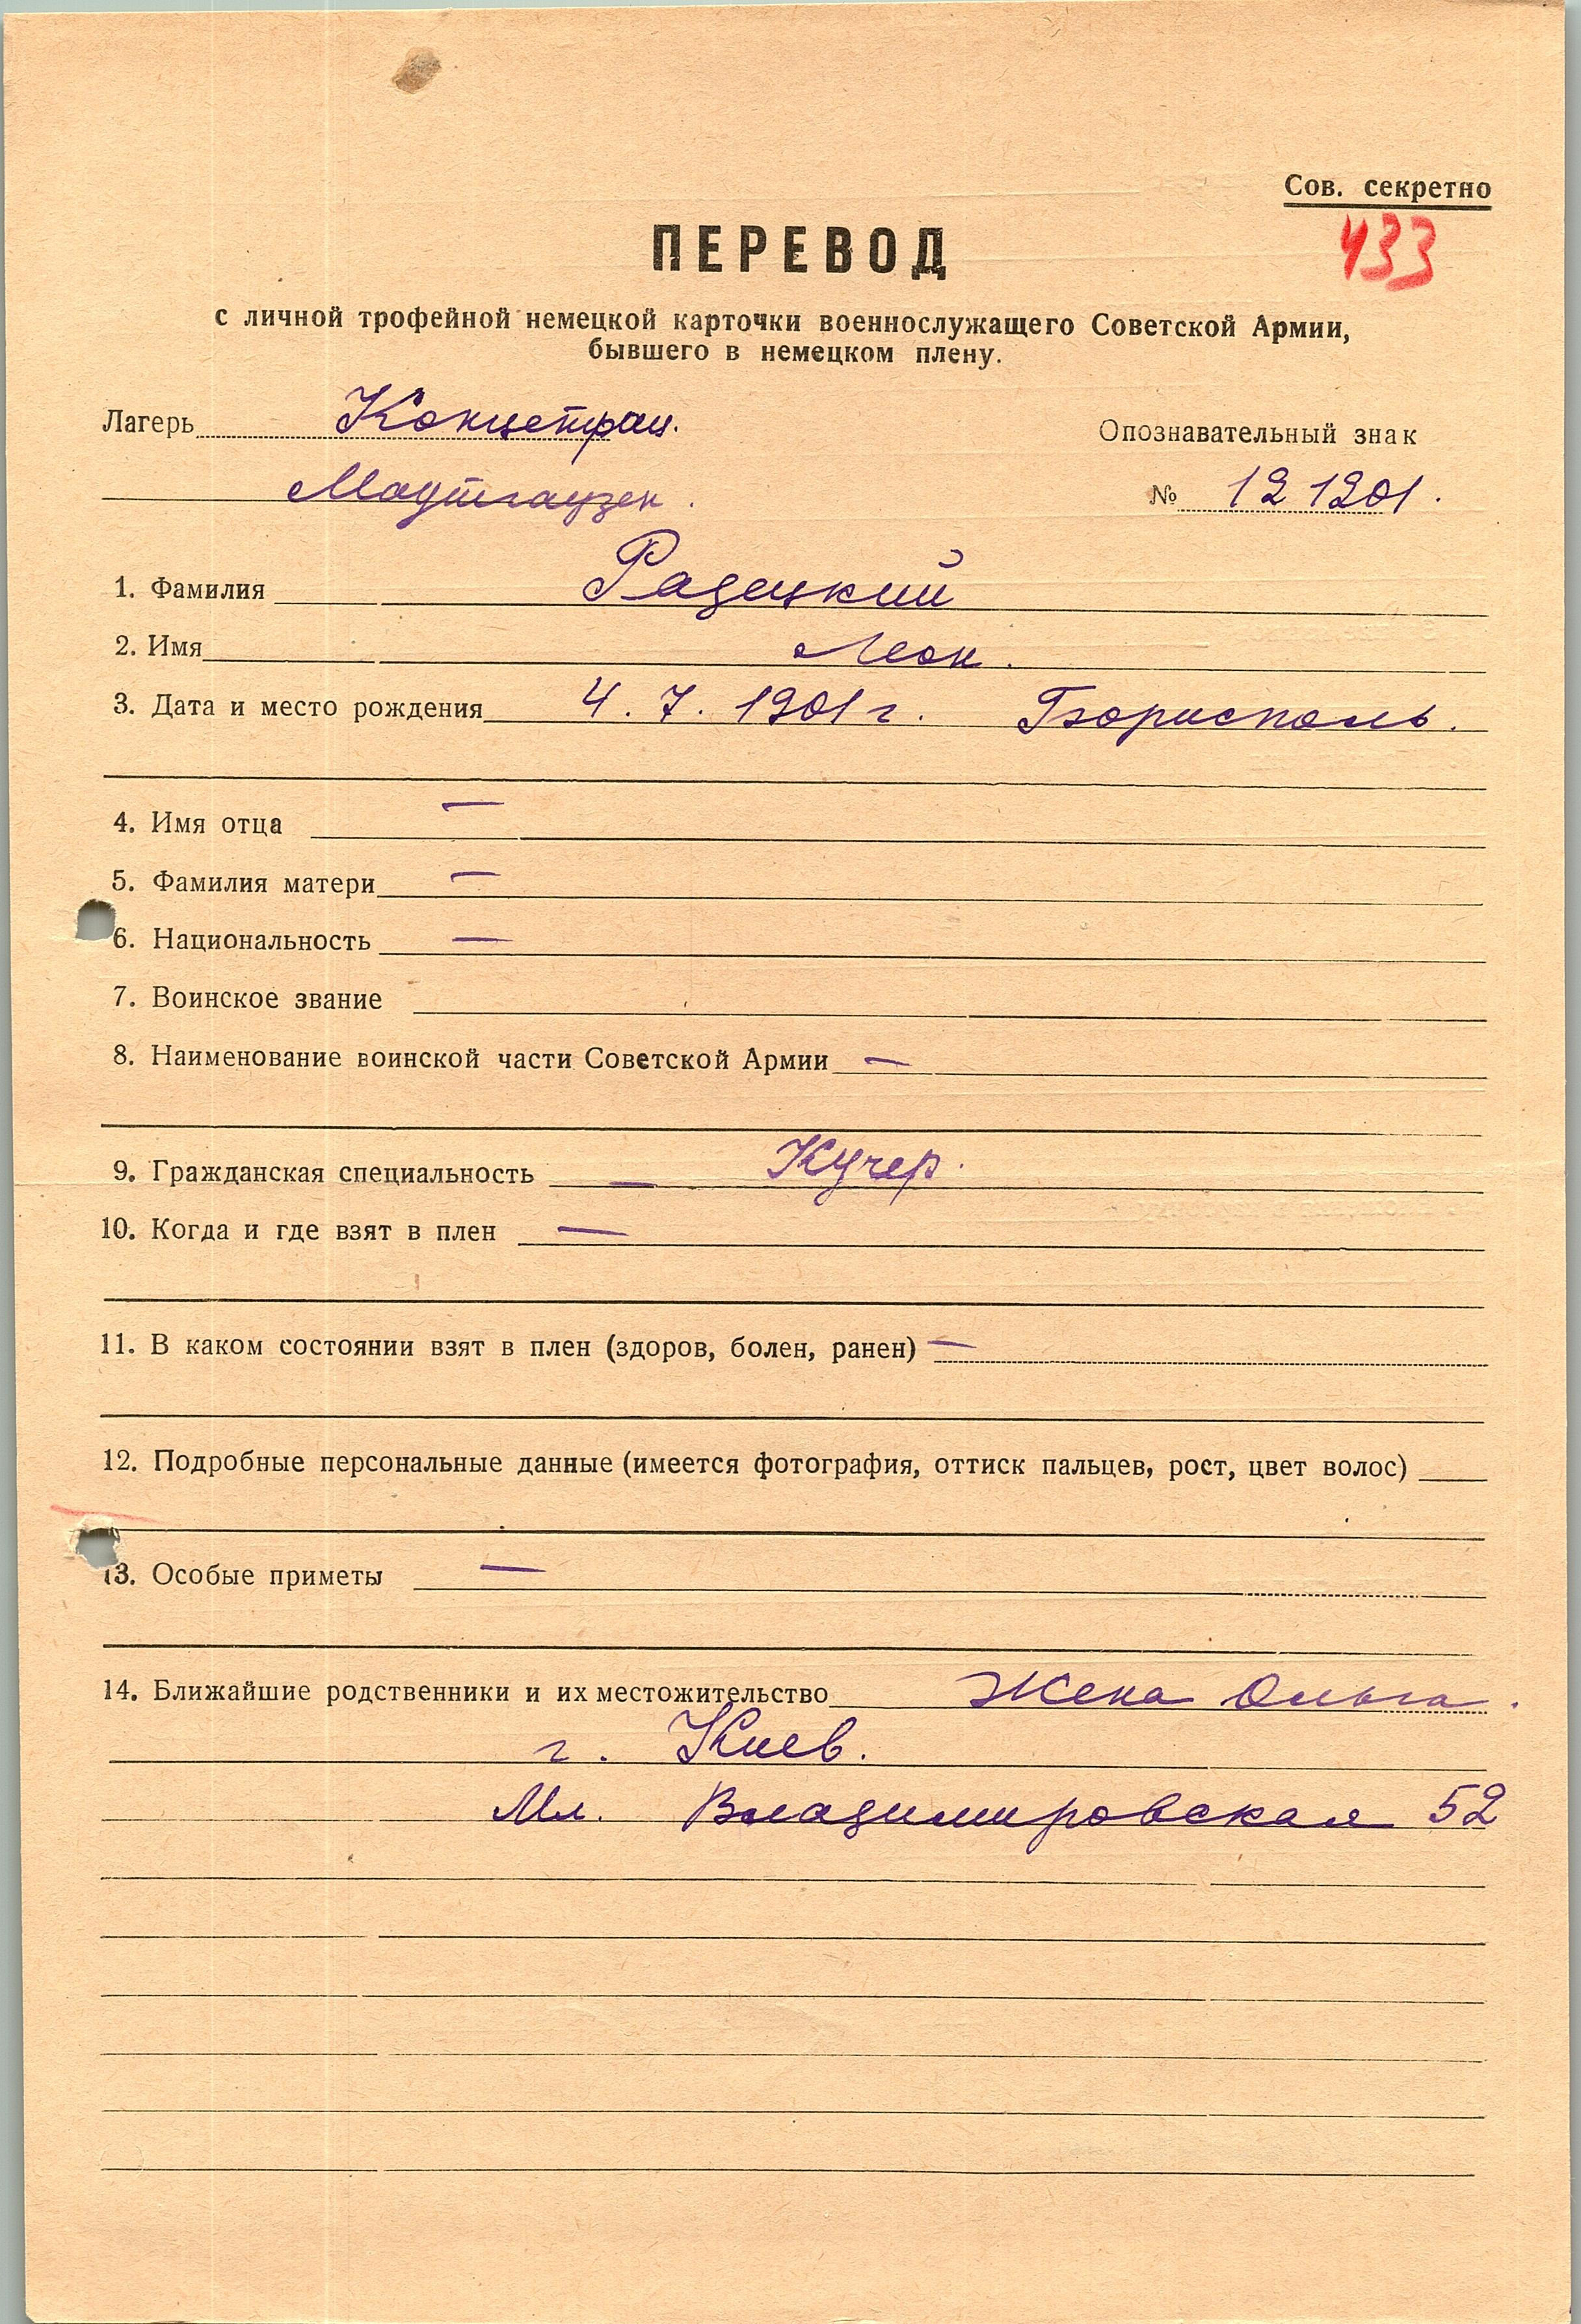 Сов. секретно
433
ПЕРЕВОД
с личной трофейной немецкой карточки военнослужащего Советской Армии,
бывшего в немецком плену.
Лагерь Концетрац. Опознавательный знак
Маутгаузен. № 121201.
1. Фамилия Радецкий
2. Имя Леон.
3. Дата и место рождения 4. 7. 1901 г. Борисполь.
4. Имя отца —
5. Фамилия матери —
6. Национальность —
7. Воинское звание
8. Наименование воинской части Советской Армии —
9. Гражданская специальность — Кучер.
10. Когда и где взят в плен —
11. В каком состоянии взят в плен (здоров, болен, ранен) —
12. Подробные персональные данные (имеется фотография, оттиск пальцев, рост, цвет волос)
13. Особые приметы —
14. Ближайшие родственники и их местожительство Жена Ольга.
г. Киев.
Мл. Владимировская 52